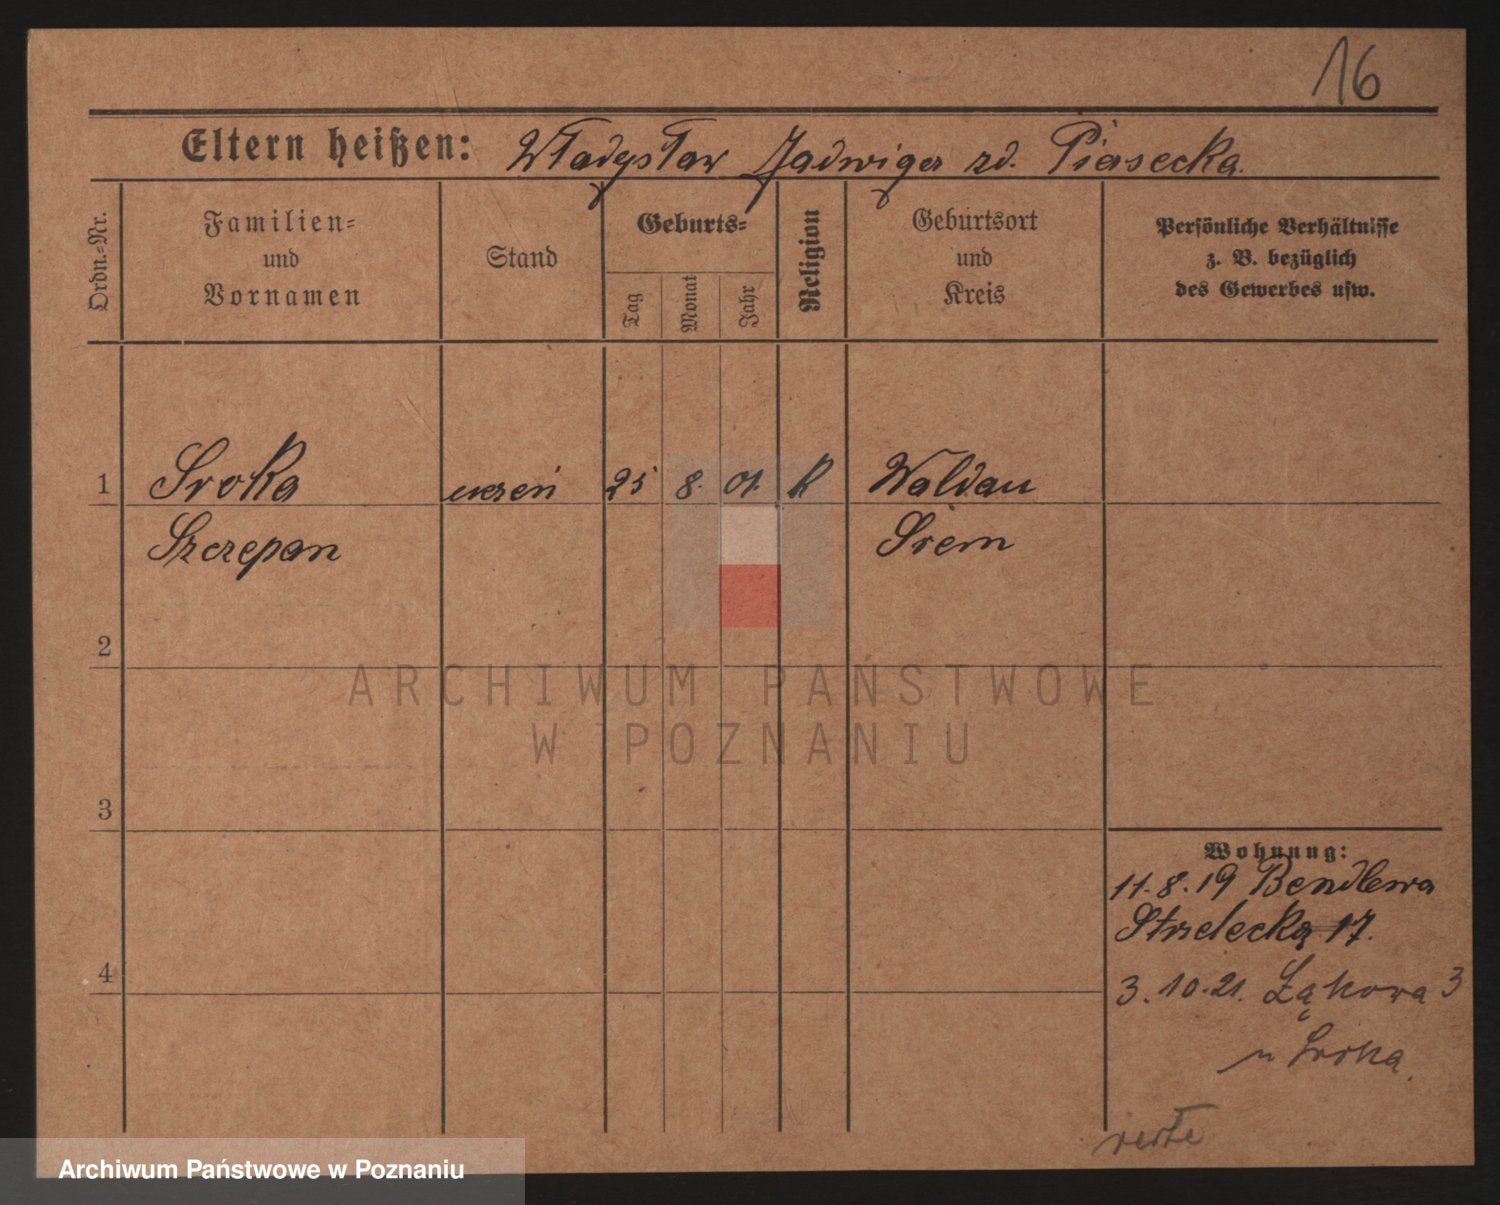 16
Eltern heißen: Władysław Jadwiga zd. Piasecka
Ordn.-Nr.
Familien- und Vornamen
Stand
Geburts-
Tag
Monat
Jahr
Religion
Geburtsort und Kreis
Persönliche Verhältnisse z. B. bezüglich des Gewerbes usw.
1
Sroka
uczeń
25
8.
01.
K
Waldau
Szczepan
Srem
2
ARCHIWUM PAŃSTWOWE
W POZNANIU
3
Wohnung:
11.8.19 Bendlewa
Strzelecka 17.
4
3.10.21. Łąkowa 3
u Sroka.
Archiwum Państwowe w Poznaniu